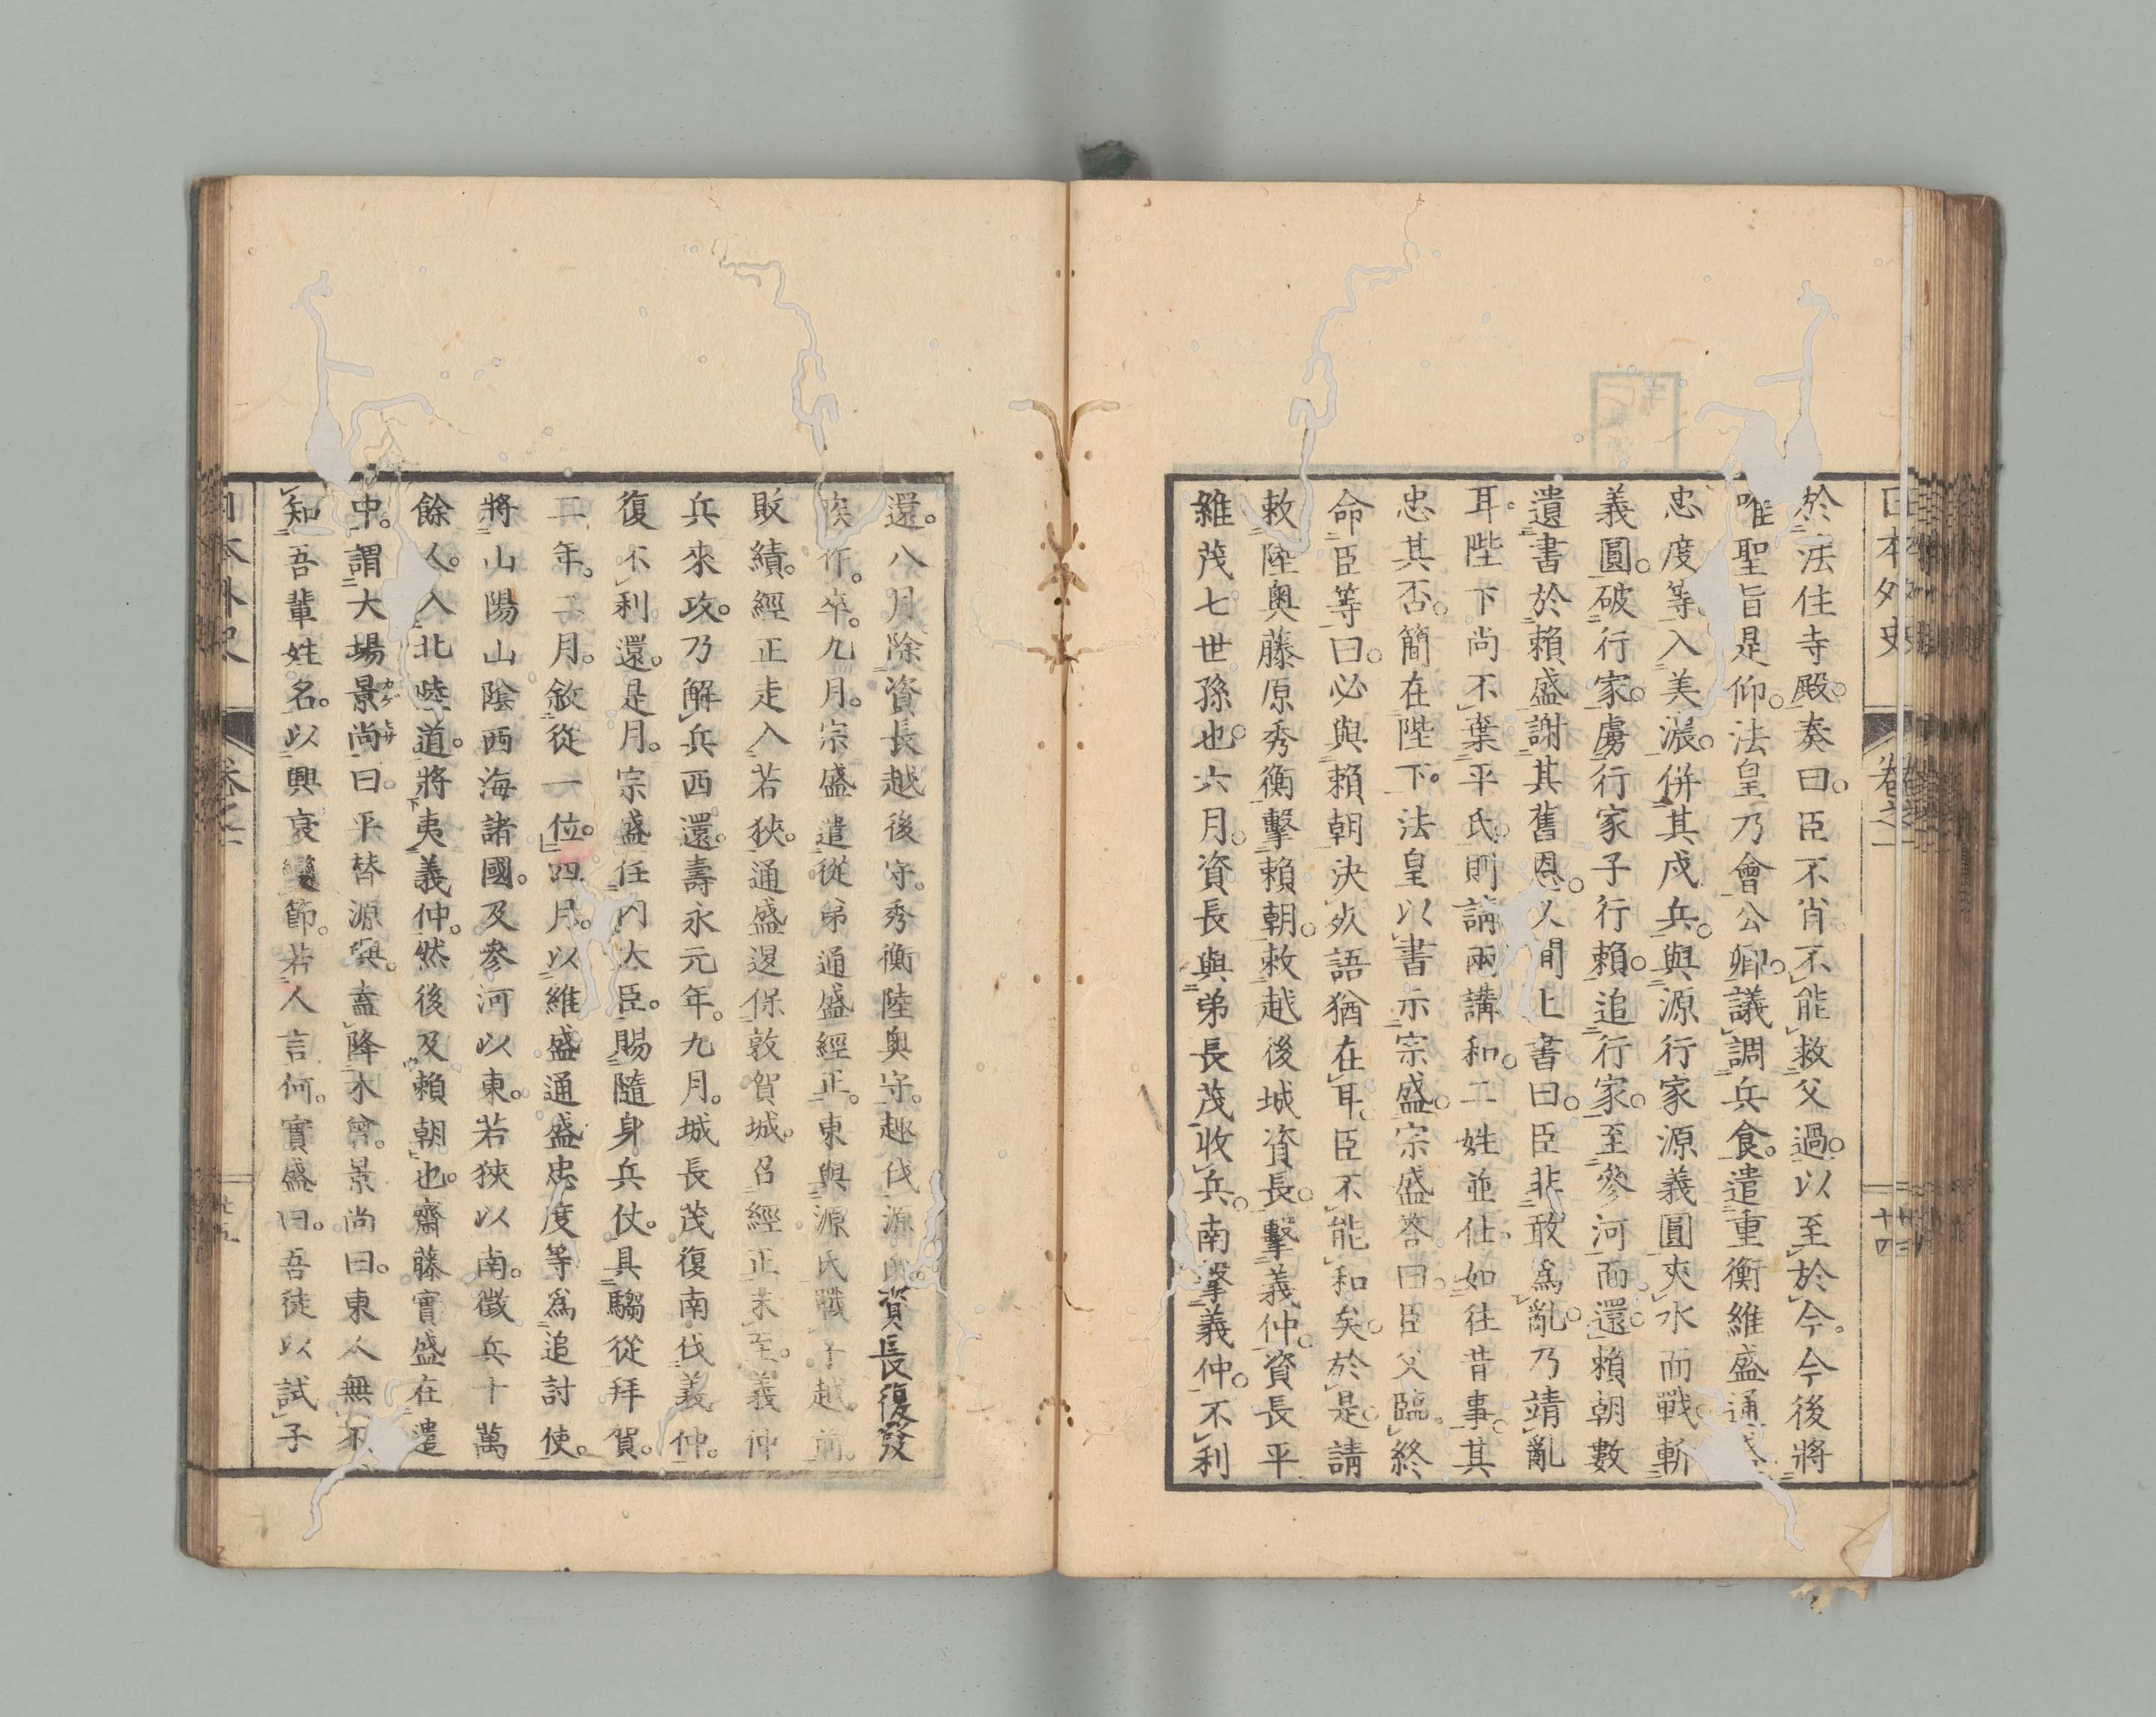 日本外史 卷之一
於法住寺殿。奏曰。臣不肖不能救父過。以至於今。今後將
唯聖旨是仰。法皇乃會公卿。議調兵食。遣重衡維盛通
忠度等。入美濃。併其戍兵。與源行家源義圓夾水而戰。斬
義圓。破行家。虜行家子行賴。追行家。至參河而還。賴朝數
遺書於賴盛謝其舊恩。又間上書曰。臣非敢爲亂。乃靖亂
耳。陛下尚不棄平氏。則請兩講和。二姓並仕。如往昔事。其
忠其否。簡在陛下。法皇以書示宗盛。宗盛答曰。臣父臨終
命臣等曰。必與賴朝決。夾語猶在耳。臣不能和矣。於是。請
敕陸奧藤原秀衡擊賴朝。敕越後城資長。擊義仲。資長平
維茂七世孫也。六月。資長與弟長茂收兵。南擊義仲。不利
還。八月。除資長越後守。秀衡陸奧守。趣伐源氏資長復發
疾作。卒。九月。宗盛遣從弟通盛經正。東與源氏戰于越前。
敗績。經正走入若狹。通盛退保敦賀城。召經正未至。義仲
兵來攻。乃解兵西還。壽永元年。九月。城長茂復南伐義仲。
復不利還。是月。宗盛任內大臣。賜隨身兵仗。具騶從拜賀。
二年。二月。敘從一位。四月。以維盛通盛忠度等爲追討使。
將山陽山陰西海諸國。及參河以東。若狹以南。徵兵十萬
餘人。入北陸道。將夷義仲。然後及賴朝也。齋藤實盛在遣
中。謂大場景尚曰。平替源興。盍降木曾。景尚曰。東人無不
知吾輩姓名。以興衰變節。若人言何。實盛曰。吾徒以試子
日本外史 卷之一